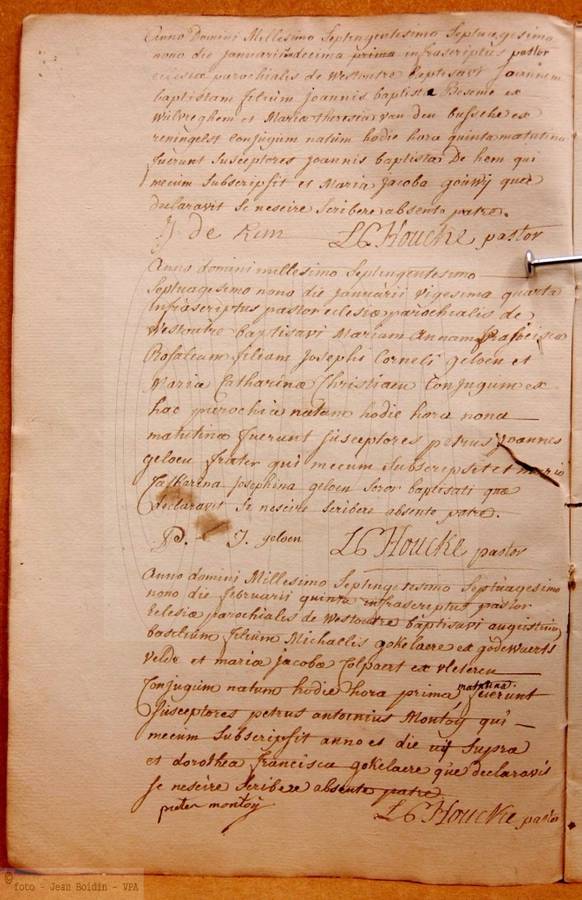 Anno Domini Millesimo Septingentesimo Septuagesimo
nono die januarii decima prima infrascriptus pastor
eclesiæ parochialis de Westoutre baptisavi joannem
baptistam filium joannis baptistæ Beseme ex
Wilvreghem et Mariæ theresiæ van den bussche ex
reningelst conjugum natum hodie hora quinta matutina
fuerunt Susceptores joannis baptista De hem qui
mecum Subscripsit et Maria jacoba gouwij quæ
declaravit se nescire scribere absente patre.
J. de kem LC Houcke pastor
Anno domini millesimo Septingentesimo
Septuagesimo nono die januarii vigesima quarta
infrascriptus pastor eclesiæ parochialis de
Westoutre baptisavi Mariam Annam francisca
Rosaleam filiam josephi Corneli geloen et
Mariæ Catharinæ Christiaen Conjugum ex
hac parochia natam hodie hora nona
matutina fuerunt susceptores petrus joannes
geloen frater qui mecum Subscripset et maria
Catharena josephina geloen soror baptisati quæ
declaravit se nescire scribere absente patre.
P. J. geloen LC Houcke pastor
Anno domini Millesimo Septingentesimo Septuagesimo
nono die februarii quinta infrascriptus pastor
Eclesiæ parochialis de Westoutre baptisavi augustinum
baselium filium Michaelis gokelaere ex godewaerts
velde et mariæ jacobæ Colpaert ex vleteren
Conjugum natum hodie hora prima matutina fuerunt
Susceptores petrus antoinius Montoÿ qui
mecum Subscripsit anno et die utj Supra
et dorothea francisca gokelaere quæ declaravit
se nescire scribere absente patre
pieter montoij LC Houcke pastor
© foto - Jean Boidin - VPA